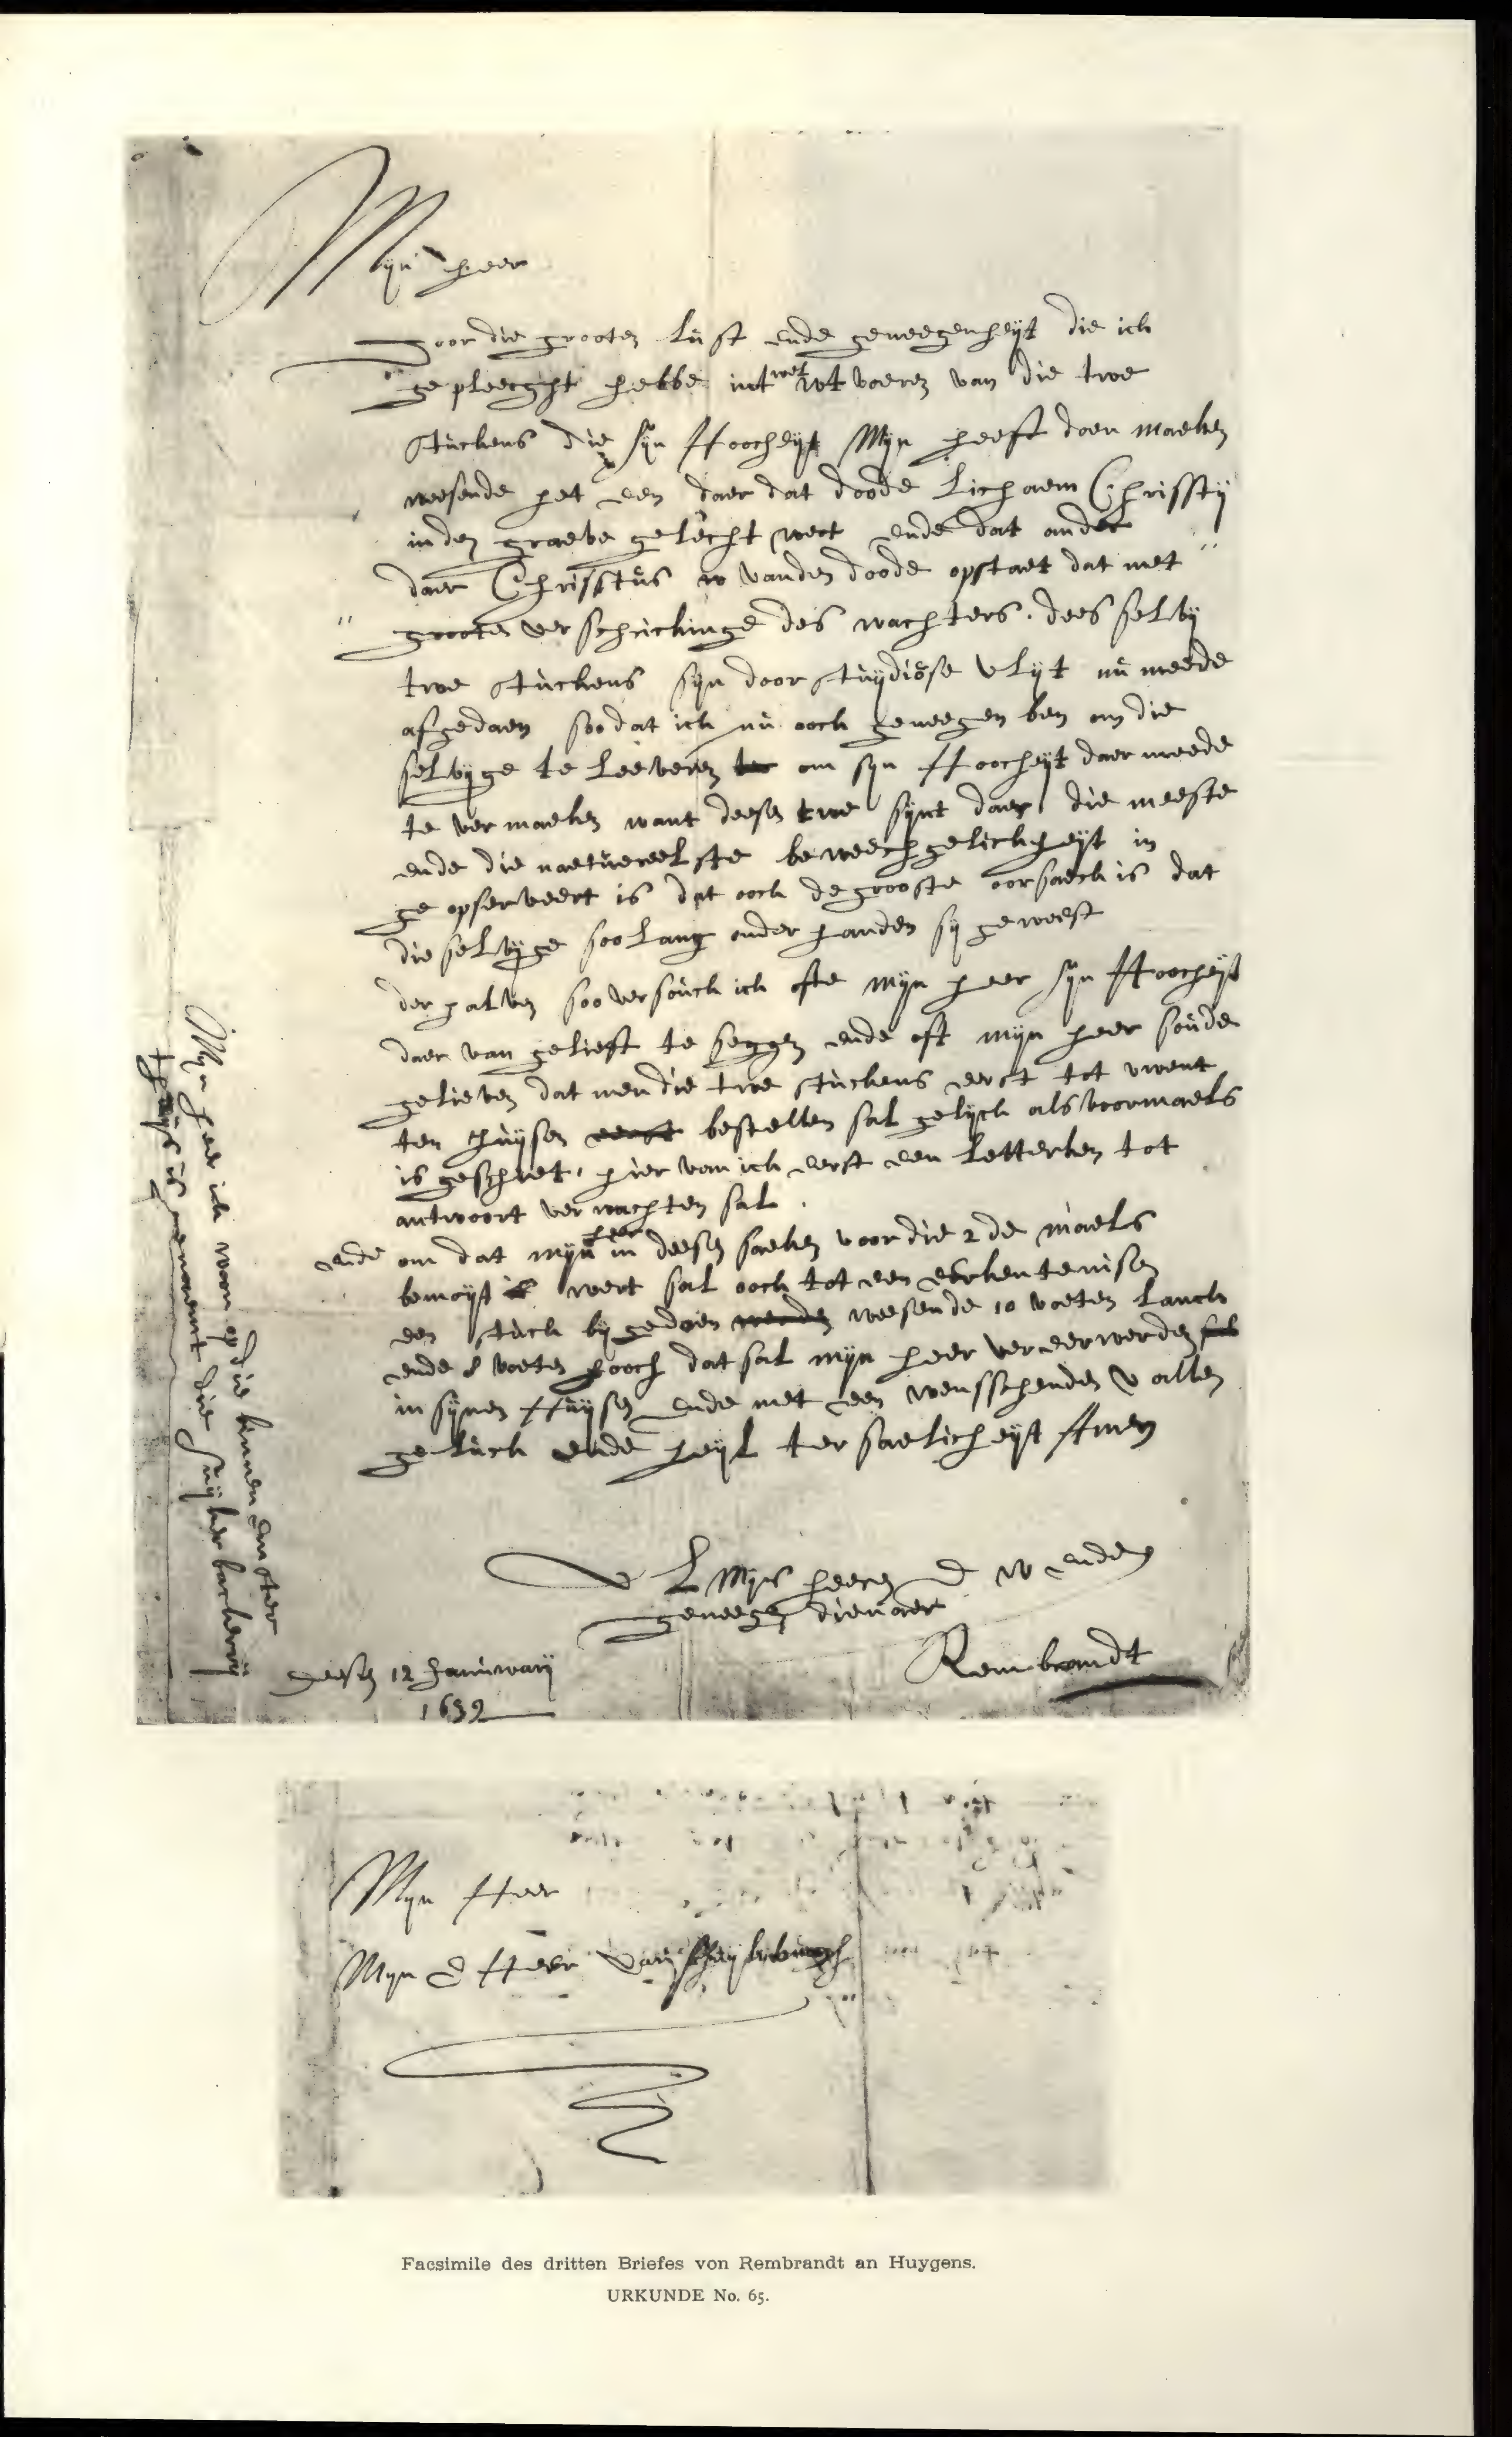 Mijn heer
door die grooten lust ende geneegenheijt die ick
gepleecght hebbe int wel wt voeren van die twe
stuckens die sijn Hoocheijt Mijn heeft doen maeken
weesende het een daer dat doode lichaem Chrissti
in den graeve gelecht wert ende dat ander
daer Chrisstus van den doode opstaet dat met
grooten verschrickinge des wachters. dees selvij
twe stuckens sijn door stuijdiose vlijt nu meede
afgedaen soodat ick nu oock geneegen ben om die
selvijge te leeveren om sijn Hoocheijt daer meede
te vermaeken want deesen twe sijnt daer die meeste
ende die naetuereelste beweechgelickheijt in
geopserveert is dat oock de grooste oorsaeck is dat
die selvijge soo lang onder handen sij geweest
derhalven soo versouck ick ofte mijn heer sijn Hoocheijt
daer van gelieft te seggen ende oft mijn heer soude
gelieven dat men die twe stuckens eerst tot uwent
ten huijsen eerst bestellen sal gelijck als voormaels
is geschiet. hier van ick eerst een letterken tot
antwoort verwachten sal.
ende om dat mijn heer in deesen saeken voor die 2de maels
bemoijt wert sal oock tot een eerkentenisen
een stuck bij gedaen werden weesende 10 voeten lanck
ende 8 voeten hooch dat sal mijn heer vereerwerden
in sijnen Huijsen ende met een wensschenden u allen
geluck ende heijl ter saelicheijt Amen
U L Mijn heeren D W ende
geneegen dienaer
Rembrandt
deesen 12 Januwarij
1639
Mijn heer ick woon op die binnen emster
thuijs is genaemt die suijkerbackerij
Mijn Heer
Mijn E Heer van Suijlenburch
Facsimile des dritten Briefes von Rembrandt an Huygens.
URKUNDE No. 65.